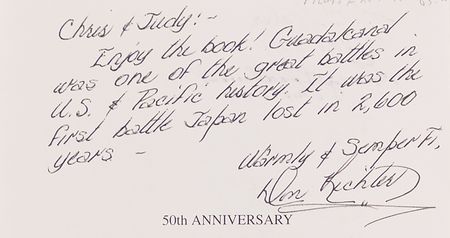 Chris & Judy:-
Enjoy the book! Guadalcanal
was one of the great battles in
U.S. & Pacific history. It was the
first battle Japan lost in 2,600
years -
Warmly & Semper Fi,
Don Richter
50th ANNIVERSARY